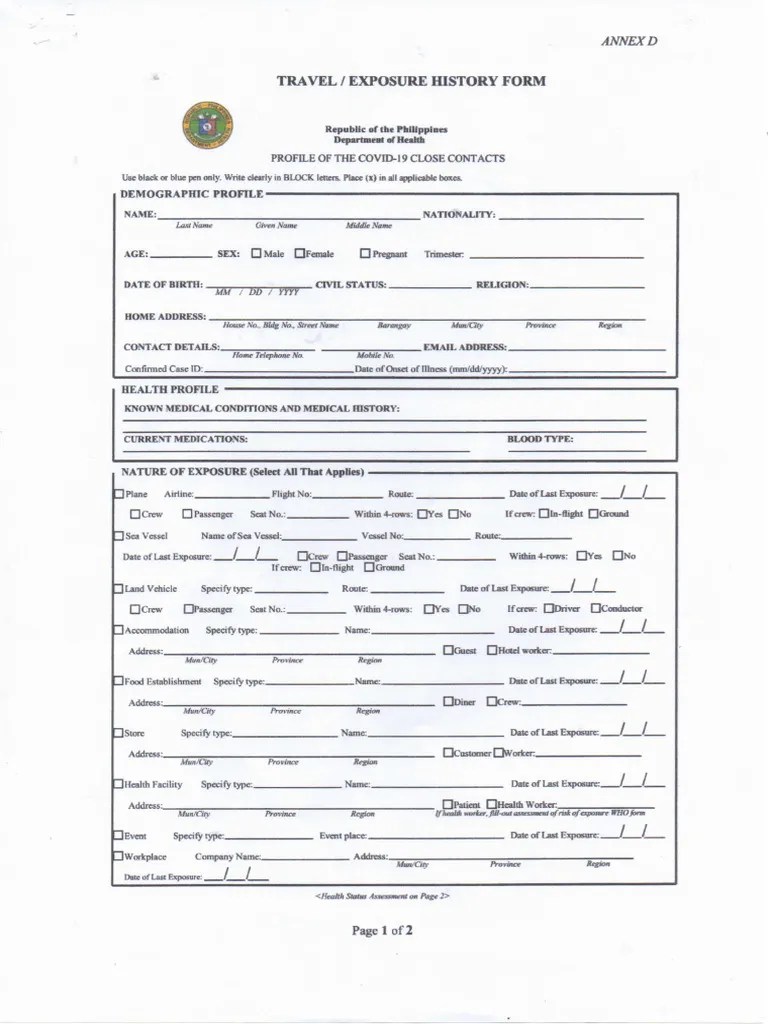 ANNEX D
TRAVEL / EXPOSURE HISTORY FORM
Republic of the Philippines
Department of Health
PROFILE OF THE COVID-19 CLOSE CONTACTS
Use black or blue pen only. Write clearly in BLOCK letters. Place (x) in all applicable boxes.
DEMOGRAPHIC PROFILE
NAME: NATIONALITY:
Last Name Given Name Middle Name
AGE: SEX: Male Female Pregnant Trimester:
DATE OF BIRTH: CIVIL STATUS: RELIGION:
MM / DD / YYYY
HOME ADDRESS:
House No., Bldg No., Street Name Barangay Mun/City Province Region
CONTACT DETAILS: EMAIL ADDRESS:
Home Telephone No. Mobile No.
Confirmed Case ID: Date of Onset of Illness (mm/dd/yyyy):
HEALTH PROFILE
KNOWN MEDICAL CONDITIONS AND MEDICAL HISTORY:
CURRENT MEDICATIONS: BLOOD TYPE:
NATURE OF EXPOSURE (Select All That Applies)
Plane Airline: Flight No: Route: Date of Last Exposure: / /
Crew Passenger Seat No.: Within 4-rows: Yes No If crew: In-flight Ground
Sea Vessel Name of Sea Vessel: Vessel No: Route:
Date of Last Exposure: / / Crew Passenger Seat No.: Within 4-rows: Yes No
If crew: In-flight Ground
Land Vehicle Specify type: Route: Date of Last Exposure: / /
Crew Passenger Seat No.: Within 4-rows: Yes No If crew: Driver Conductor
Accommodation Specify type: Name: Date of Last Exposure: / /
Address: Guest Hotel worker:
Mun/City Province Region
Food Establishment Specify type: Name: Date of Last Exposure: / /
Address: Diner Crew:
Mun/City Province Region
Store Specify type: Name: Date of Last Exposure: / /
Address: Customer Worker:
Mun/City Province Region
Health Facility Specify type: Name: Date of Last Exposure: / /
Address: Patient Health Worker:
Mun/City Province Region If health worker, fill-out assessment of risk of exposure WHO form
Event Specify type: Event place: Date of Last Exposure: / /
Workplace Company Name: Address:
Mun/City Province Region
Date of Last Exposure: / /
<Health Status Assessment on Page 2>
Page 1 of 2